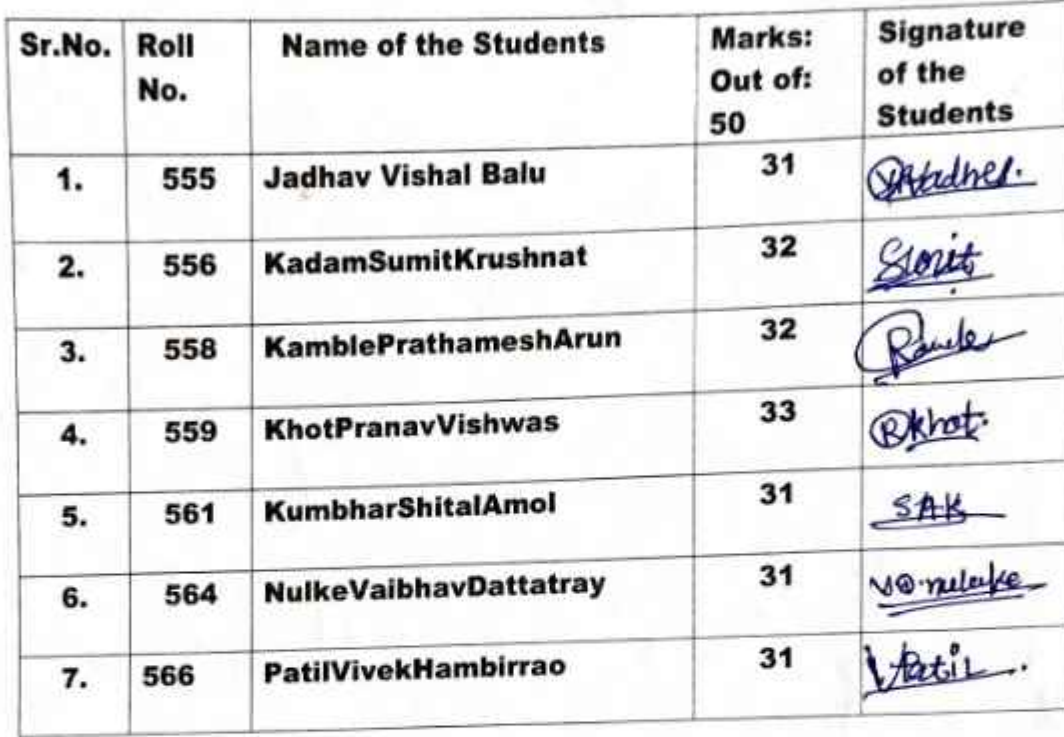 Sr.No. Roll No. Name of the Students Marks: Out of: 50 Signature of the Students
1. 555 Jadhav Vishal Balu 31
2. 556 KadamSumitKrushnat 32 Sumit
3. 558 KamblePrathameshArun 32
4. 559 KhotPranavVishwas 33 PKhot.
5. 561 KumbharShitalAmol 31 SAK
6. 564 NulkeVaibhavDattatray 31
7. 566 PatilVivekHambirrao 31 VPatil.